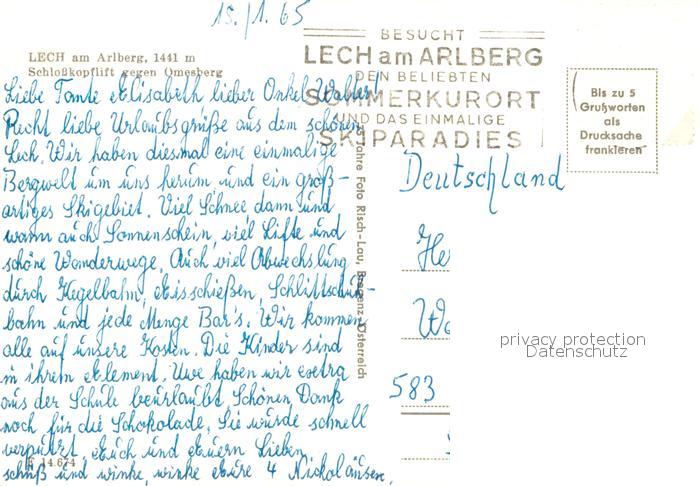 15./1.65
BESUCHT
LECH am ARLBERG
DEN BELIEBTEN
SOMMERKURORT
UND DAS EINMALIGE
SKIPARADIES
LECH am Arlberg, 1441 m
Schloßkopflift gegen Omesberg
Bis zu 5
Grußworten
als
Drucksache
frankieren
Liebe Tante Elisabeth lieber Onkel Walter!
Recht liebe Urlaubsgrüße aus dem schönen
Lech. Wir haben diesmal eine einmalige
Bergwelt um uns herum, und ein groß-
artiges Skigebiet. Viel Schnee dann und
wann auch Sonnenschein, viel Lifte und
schöne Wanderwege, Auch viel Abwechslung
durch Kegelbahn, Eisschießen, Schlittschuh-
bahn und jede Menge Bar's. Wir kommen
alle auf unsere Kosten. Die Kinder sind
in ihrem Element. Uwe haben wir extra
aus der Schule beurlaubt. Schönen Dank
noch für die Schokolade, Sie wurde schnell
verputzt. Euch und Euern Lieben
und winke, winke Eure 4
14.674
Jahre Foto Risch-Lau, Bregenz, Österreich
Deutschland
He
Wa
583
privacy protection
Datenschutz